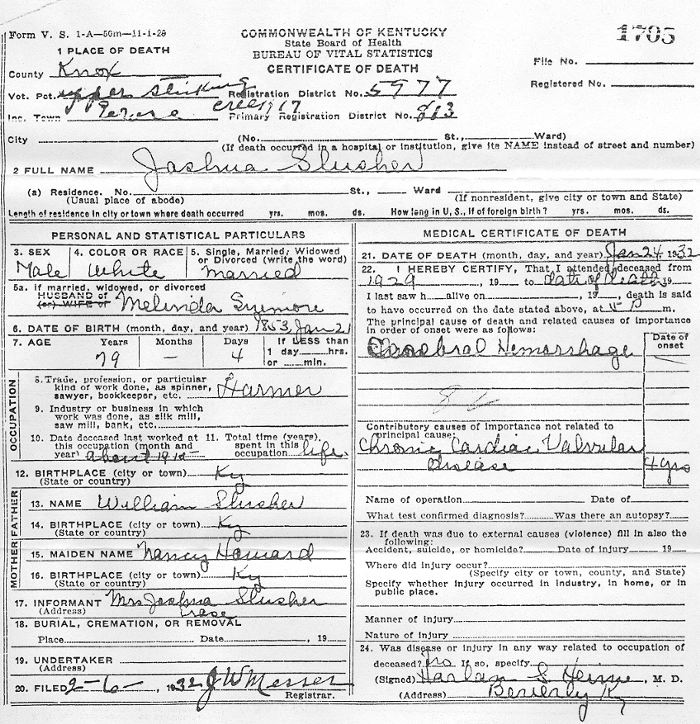 Form V. S. 1-A—50m—11-1-29
COMMONWEALTH OF KENTUCKY
State Board of Health
BUREAU OF VITAL STATISTICS
CERTIFICATE OF DEATH
1705
1 PLACE OF DEATH
File No.
County Knox
Registered No.
Vot. Pct. upper Stinking Registration District No. 5977
Inc. Town Primary Registration District No.
City (No. St., Ward)
(If death occurred in a hospital or institution, give its NAME instead of street and number)
2 FULL NAME Jashua Slusher
(a) Residence. No. St., Ward
(Usual place of abode) (If nonresident, give city or town and State)
Length of residence in city or town where death occurred yrs. mos. ds. How long in U. S., if of foreign birth? yrs. mos. ds.
PERSONAL AND STATISTICAL PARTICULARS
3. SEX Male
4. COLOR OR RACE White
5. Single, Married, Widowed or Divorced (write the word) Married
5a. If married, widowed, or divorced
HUSBAND of
(or) WIFE of Melinda
6. DATE OF BIRTH (month, day, and year) 1853 Jan 21
7. AGE Years 79 Months — Days 4 If LESS than 1 day hrs. or min.
OCCUPATION
8. Trade, profession, or particular
kind of work done, as spinner,
sawyer, bookkeeper, etc. Farmer
9. Industry or business in which
work was done, as silk mill,
saw mill, bank, etc.
10. Date deceased last worked at this occupation (month and year) about
11. Total time (years) spent in this occupation life
12. BIRTHPLACE (city or town) Ky
(State or country)
FATHER
13. NAME William Slusher
14. BIRTHPLACE (city or town) Ky
(State or country)
MOTHER
15. MAIDEN NAME Nancy Howard
16. BIRTHPLACE (city or town) Ky
(State or country)
17. INFORMANT Mrs Jashua Slusher
(Address)
18. BURIAL, CREMATION, OR REMOVAL
Place Date , 19
19. UNDERTAKER
(Address)
20. FILED 2-6-, 1932 J W Messer
Registrar.
MEDICAL CERTIFICATE OF DEATH
21. DATE OF DEATH (month, day, and year) Jan 24 1932
22. I HEREBY CERTIFY, That I attended deceased from
1929 , 19 to date of death, 19
I last saw h alive on , 19 , death is said
to have occurred on the date stated above, at 5 P m.
The principal cause of death and related causes of importance
in order of onset were as follows:
Date of onset
Cerebral Hemorrhage
Contributory causes of importance not related to
principal cause:
Chronic Cardiac Valvular
Disease 4 yrs
Name of operation Date of
What test confirmed diagnosis? Was there an autopsy?
23. If death was due to external causes (violence) fill in also the
following:
Accident, suicide, or homicide? Date of injury 19
Where did injury occur?
(Specify city or town, county, and State)
Specify whether injury occurred in industry, in home, or in
public place.
Manner of injury
Nature of injury
24. Was disease or injury in any way related to occupation of
deceased? If so, specify
(Signed) Harlan S. M. D.
(Address) Beverly Ky